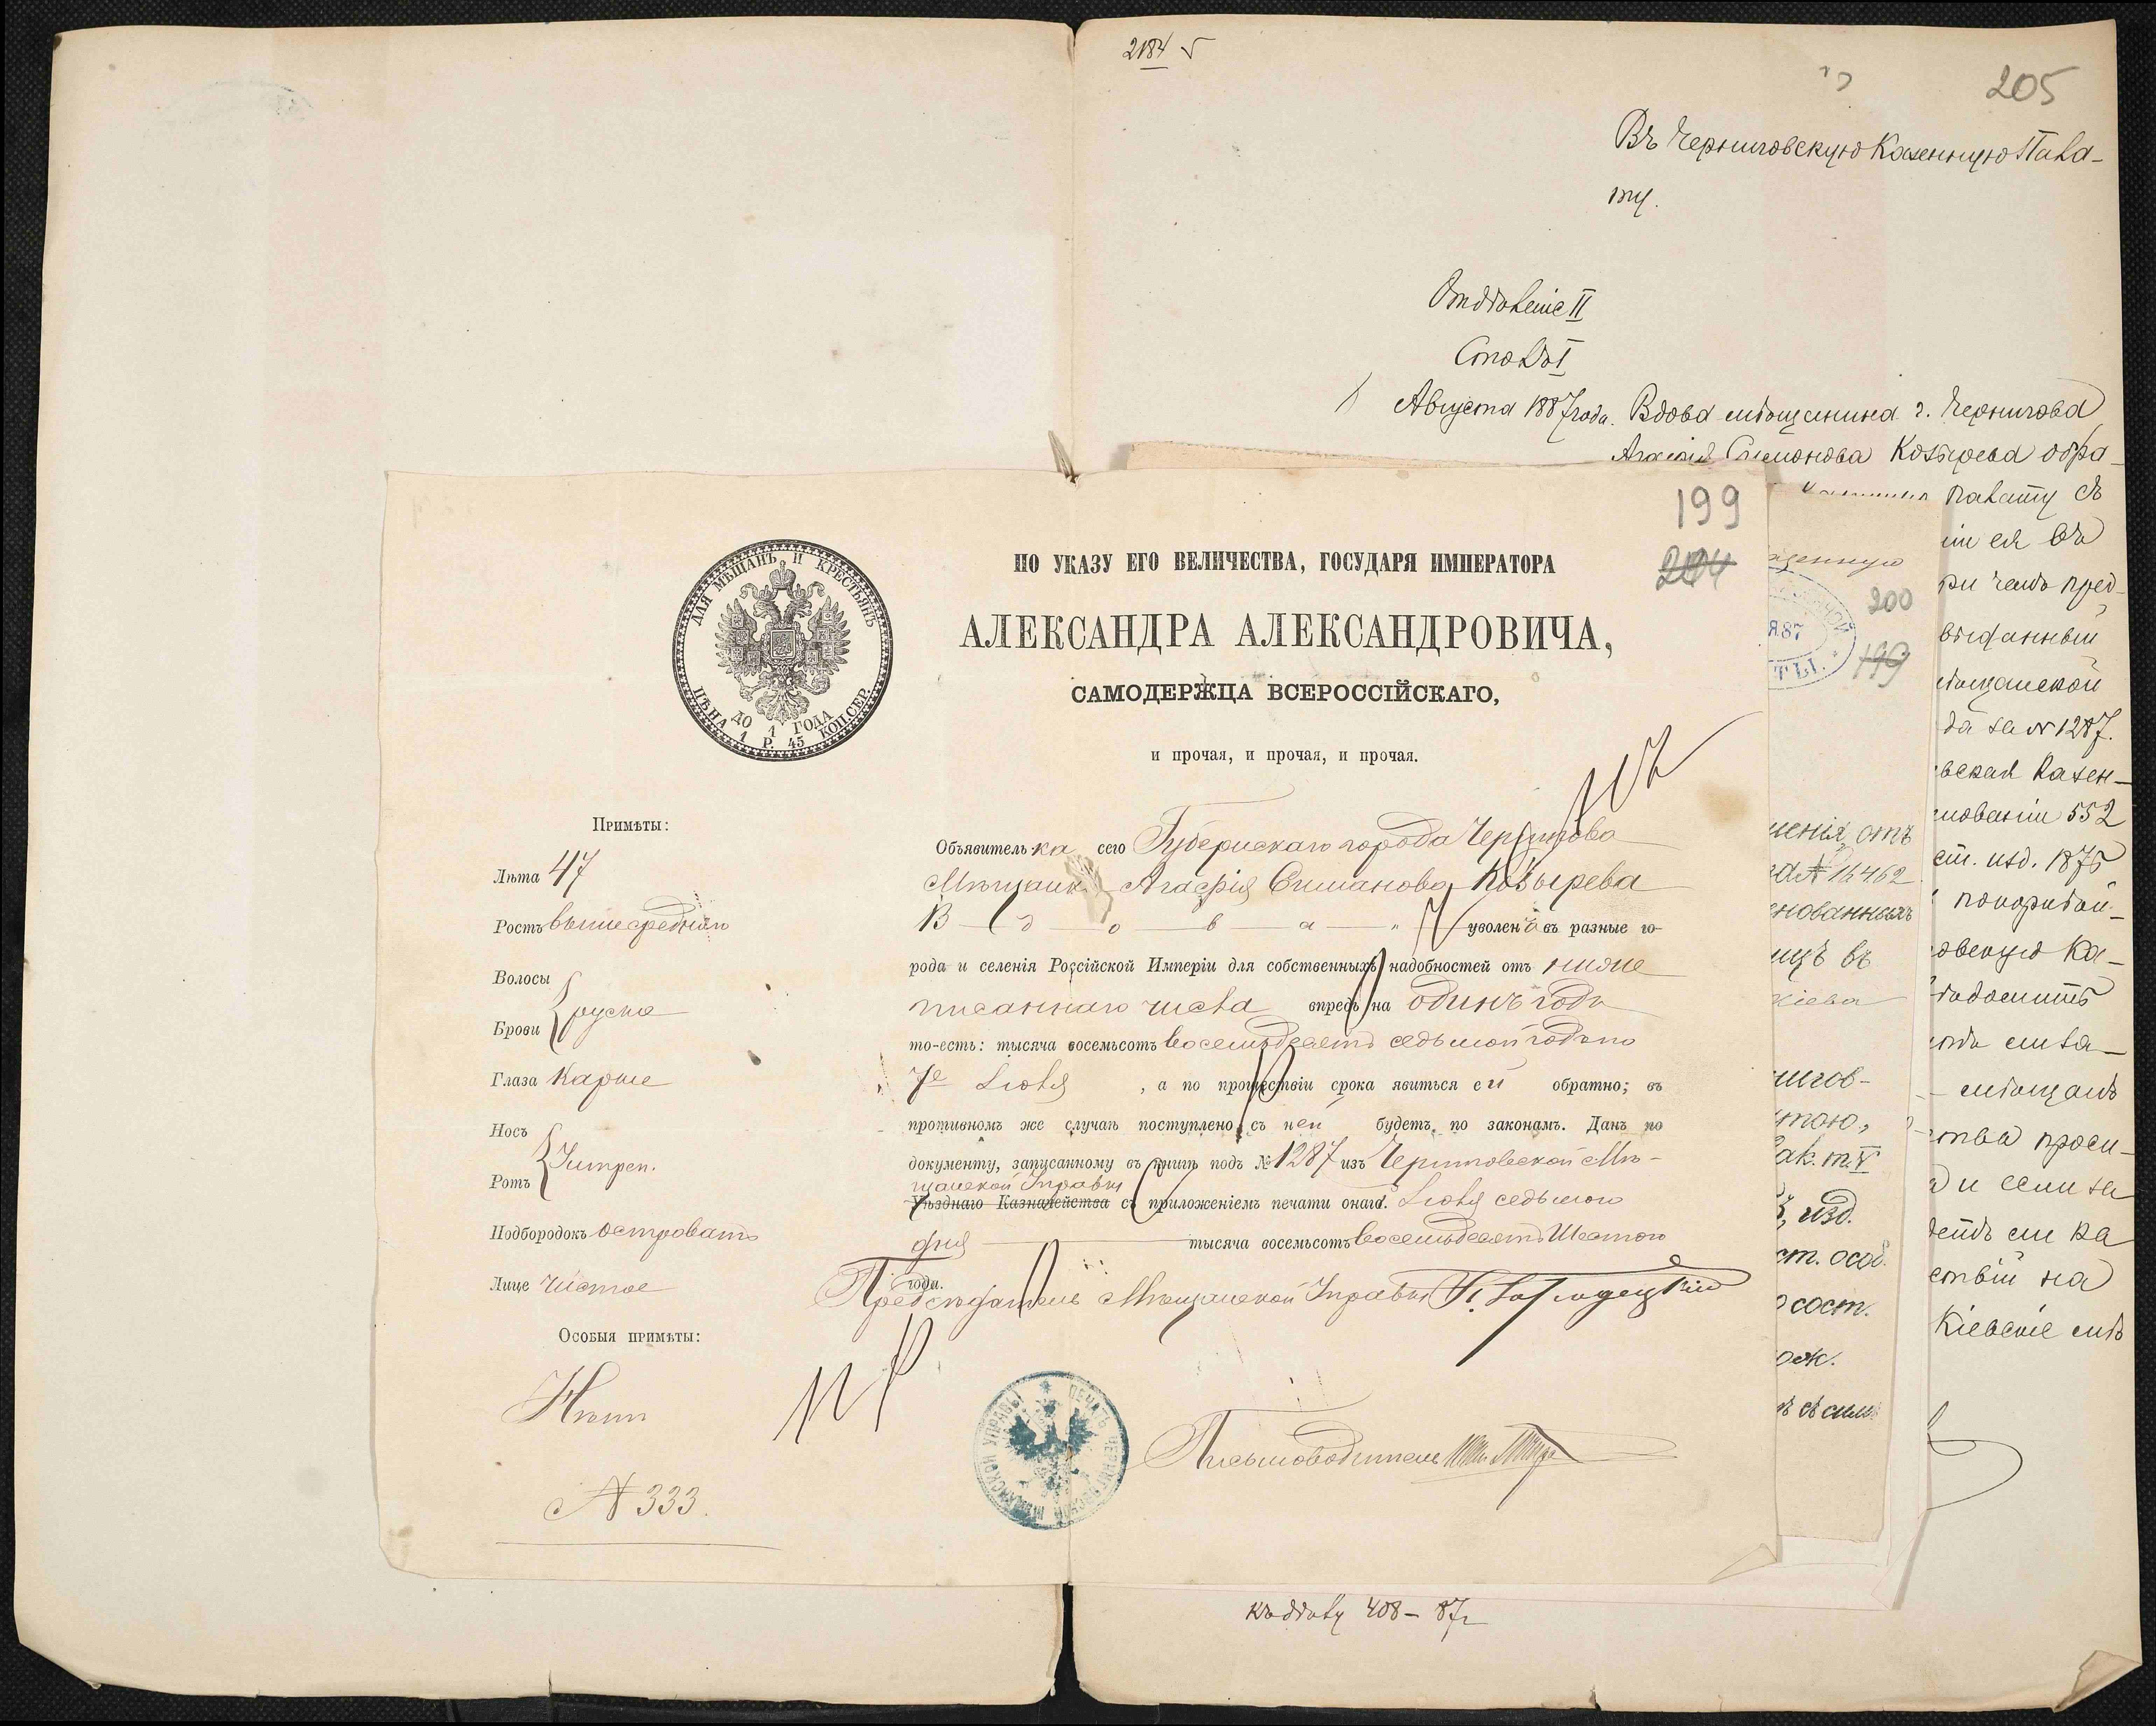 2184
205
Въ Черниговскую Казенную Пала-
ту.
Отдѣленіе II
Столъ I
Августа 1887 года. Вдова мѣщанина г. Чернигова
Симонова Козырева обра-
палату съ
ея въ
при чемъ пред-
выданный
мѣщанской
да за № 1287.
вская Казен-
нованіи 552
ст. изд. 1876
покорнѣй-
овскую Ка-
мѣщанъ
ства проси-
и если за
ствій на
Кіевскіе мѣ
199
204
200
199
87
ТЫ.
ченія, отъ
№ 16462
енованныхъ
ицъ въ
Кіева
нигов-
тою,
ак. т. V
изд.
ст. особ.
сост.
ож.
ДЛЯ МѢЩАНЪ И КРЕСТЬЯНЪ
ЦѢНА 1 Р. 45 КОП. СЕР.
ДО 1 ГОДА
ПО УКАЗУ ЕГО ВЕЛИЧЕСТВА, ГОСУДАРЯ ИМПЕРАТОРА
АЛЕКСАНДРА АЛЕКСАНДРОВИЧА,
САМОДЕРЖЦА ВСЕРОССІЙСКАГО,
и прочая, и прочая, и прочая.
Примѣты:
Лѣта 47
Ростъ выше средняго
Волосы
Брови русые
Глаза Каріе
Носъ
Ротъ Умѣрен.
Подбородокъ островатъ
Лице чистое
Особыя примѣты:
Нѣтъ
№ 333.
Объявителька сего Губернскаго города Чернигова
Мѣщанка Агафія Симанова Козырева
Вдова уволена въ разные го-
рода и селенія Россійской Имперіи для собственныхъ надобностей отъ ниже
писаннаго числа впредь на одинъ годъ
то-есть: тысяча восемьсотъ восемьдесятъ седьмой годъ по
7е Іюля, а по прошествіи срока явиться ей обратно; въ
противномъ же случаѣ поступлено съ ней будетъ, по законамъ. Данъ по
документу, записанному въ книгѣ подъ № 1287 изъ Черниговской Мѣ-
щанской Управы
Уѣзднаго Казначейства съ приложеніемъ печати онаго. Іюля седьмого
дня тысяча восемьсотъ восемьдесятъ Шестого
года.
Предсѣдатель Мѣщанской Управы
Письмоводитель
ПЕЧАТЬ ЧЕРНИГОВСКОЙ МѢЩАНСКОЙ УПРАВЫ
къ дѣлу 408 – 87 г